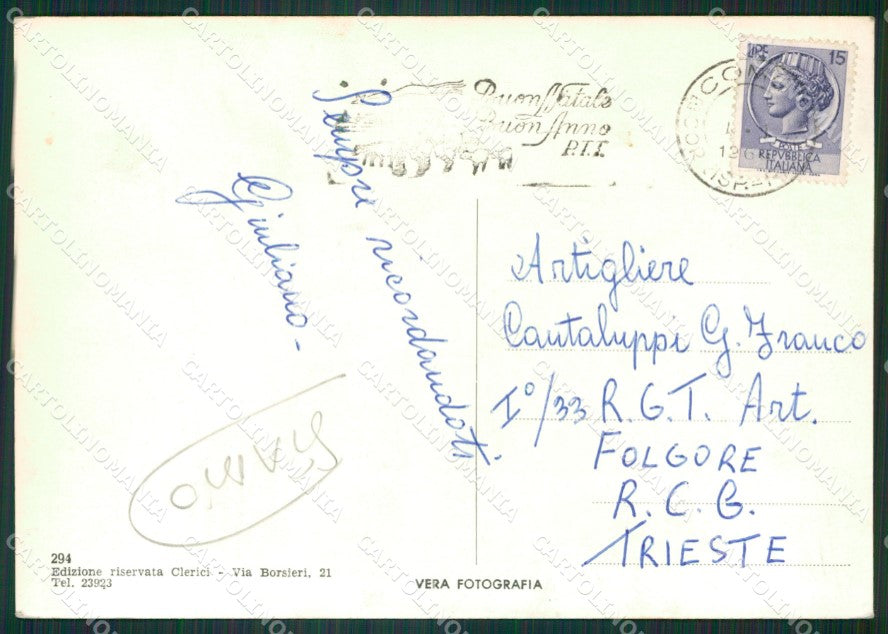 Buon Natale
Buon Anno
P.T.T.
15
REPVBBLICA
ITALIANA
Sempre ricordandoti.
Giuliano-
Artigliere
Cantaluppi G. Franco
I°/33 R.G.T. Art.
FOLGORE
R. C. G.
TRIESTE
294
Edizione riservata Clerici - Via Borsieri, 21
Tel. 23923
VERA FOTOGRAFIA
CARTOLINOMANIA